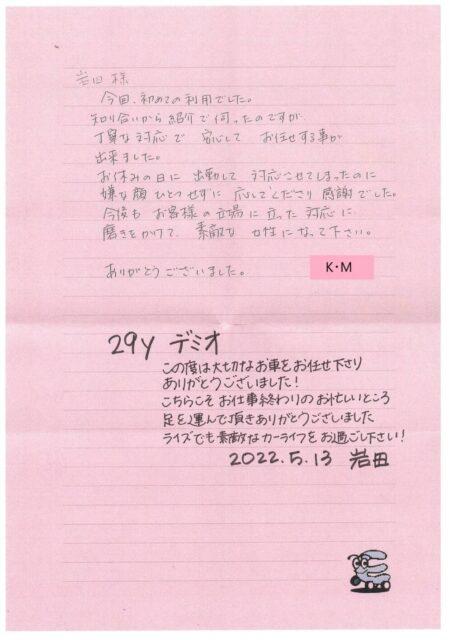 岩田 様
今回、初めての利用でした。
知り合いから 紹介で 伺ったのですが、
丁寧な 対応で 安心して お任せする事が
出来ました。
お休みの日に 出勤して 対応させてしまったのに
嫌な顔ひとつせずに 応じてくださり 感謝でした。
今後も お客様の立場に立った 対応に
磨きをかけて、素敵な 女性になって下さい。
ありがとうございました。
K・M
29y デミオ
この度は大切なお車をお任せ下さり
ありがとうございました!
こちらこそ お仕事終わりの お忙しいところ
足を運んで頂きありがとうございました
ライズでも素敵なカーライフをお過ごし下さい!
2022.5.13 岩田